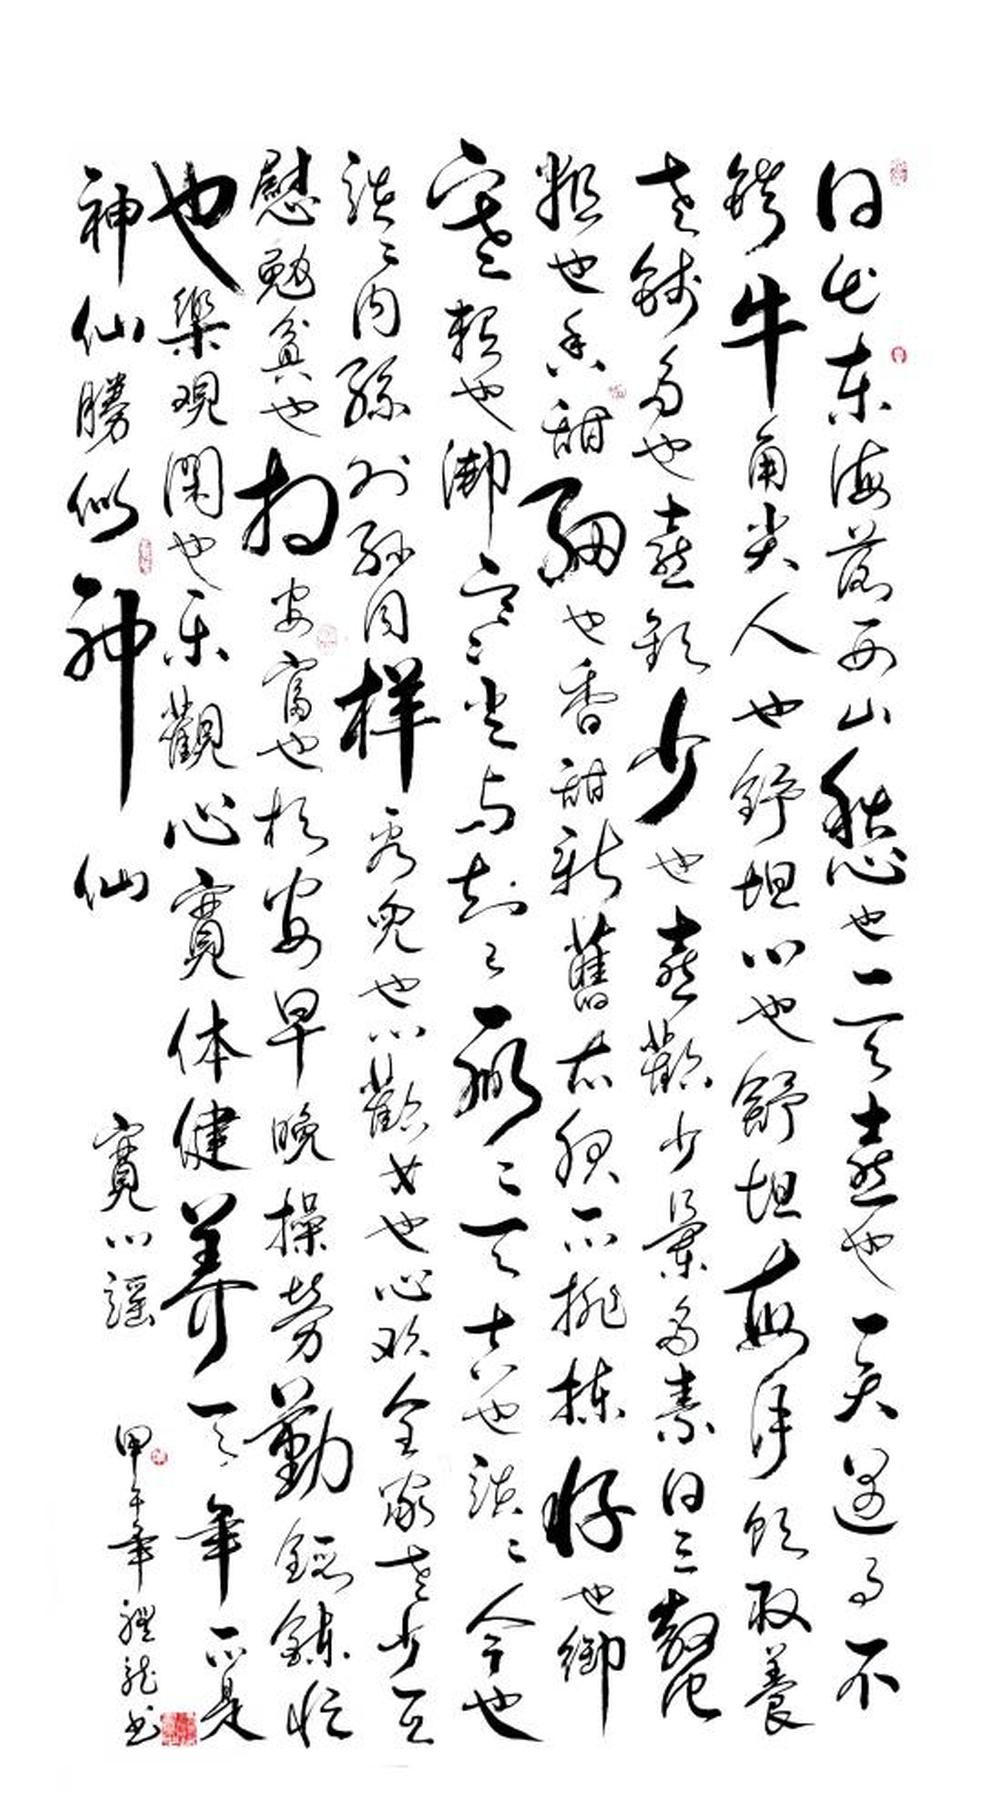 日出东海落西山愁也一天喜也一天遇事不
鑽牛角尖人也舒坦心也舒坦每月领取養
老錢多也喜欢少也喜歡少葷多素日三餐
粗也香甜細也香甜新舊衣服不挑揀好也御
寒赖也御寒常与知己聊々天古也談々今也
談々内孫外孙同样看兒也心歡女也心欢全家老少互
慰勉貧也相安富也相安早晚操勞勤鍛鍊忙
也樂观闲也乐觀心寬体健养天年不是
神仙勝似神仙
寬心謡
甲午年 龙书